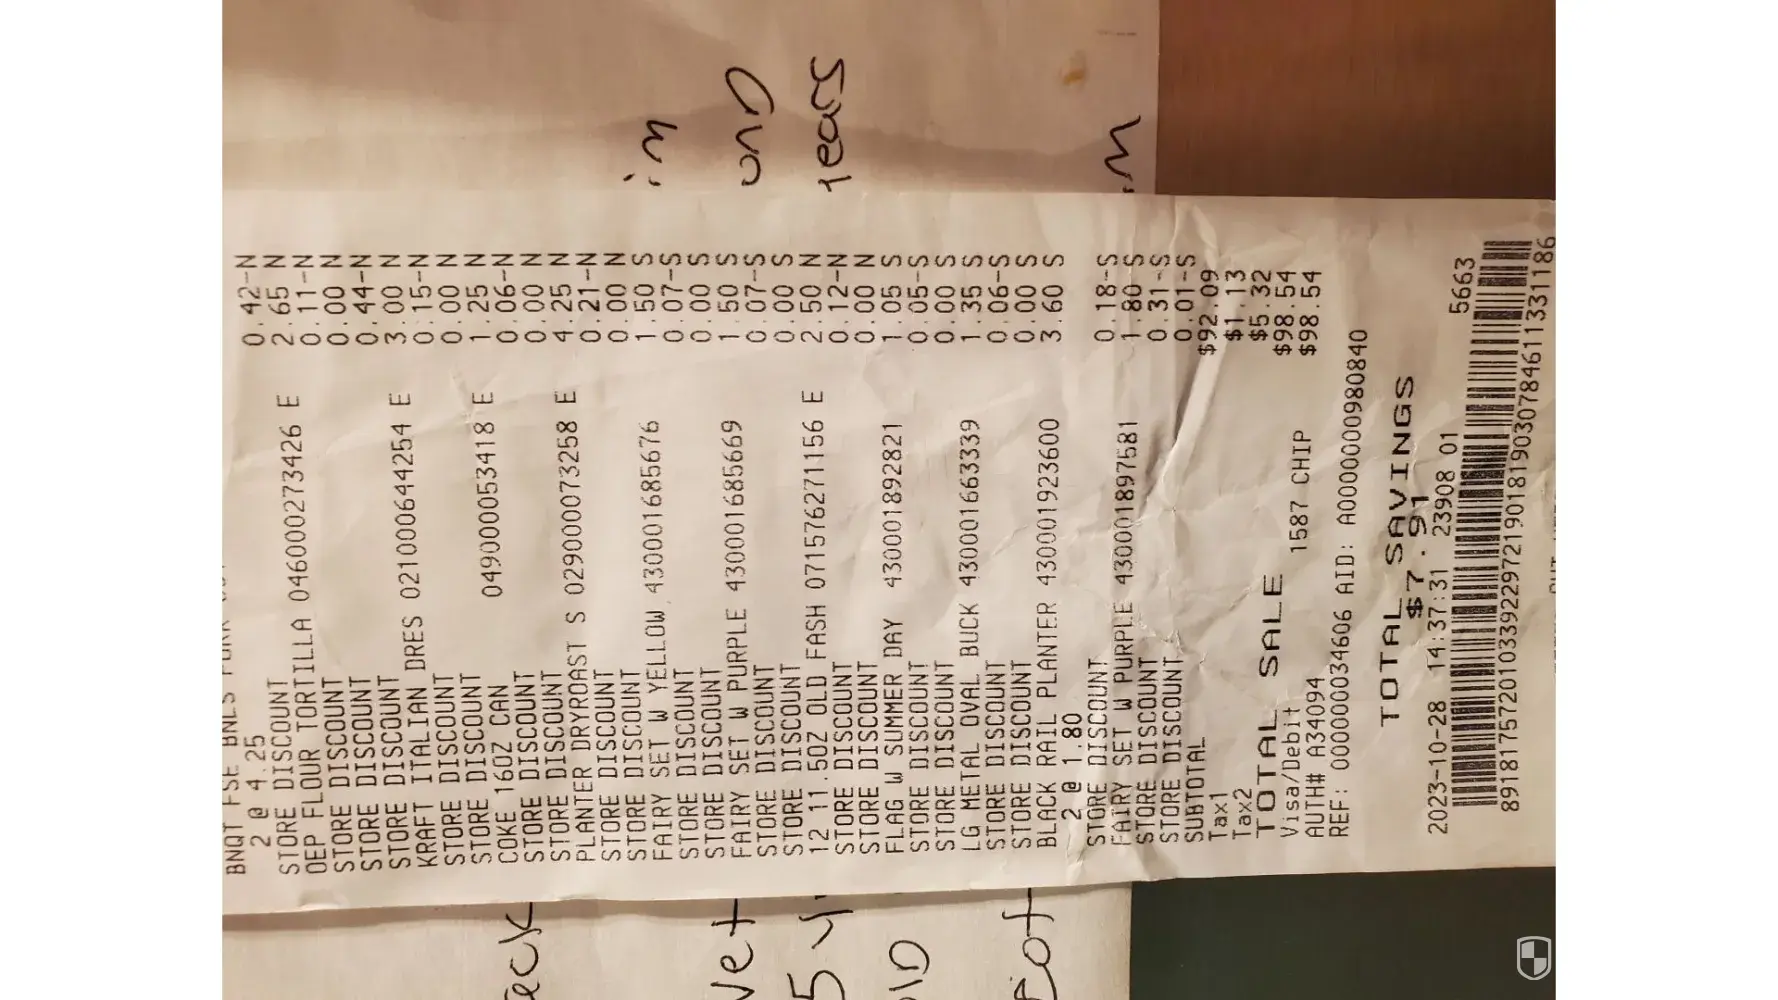 in
und
years
BNQT FSE BNLS PORK
2 @ 4.25
STORE DISCOUNT 0.42-N
OEP FLOUR TORTILLA 046000273426 E 2.65 N
STORE DISCOUNT 0.11-N
STORE DISCOUNT 0.00 N
STORE DISCOUNT 0.44-N
KRAFT ITALIAN DRES 021000644254 E 3.00 N
STORE DISCOUNT 0.15-N
STORE DISCOUNT 0.00 N
COKE 16OZ CAN 049000053418 E 1.25 N
STORE DISCOUNT 0.06-N
STORE DISCOUNT 0.00 N
PLANTER DRYROAST S 029000073258 E 4.25 N
STORE DISCOUNT 0.21-N
STORE DISCOUNT 0.00 N
FAIRY SET W YELLOW 430001685676 1.50 S
STORE DISCOUNT 0.07-S
STORE DISCOUNT 0.00 S
FAIRY SET W PURPLE 430001685669 1.50 S
STORE DISCOUNT 0.07-S
STORE DISCOUNT 0.00 S
12 11.5OZ OLD FASH 071576271156 E 2.50 N
STORE DISCOUNT 0.12-N
STORE DISCOUNT 0.00 N
FLAG W SUMMER DAY 430001892821 1.05 S
STORE DISCOUNT 0.05-S
STORE DISCOUNT 0.00 S
LG METAL OVAL BUCK 430001663339 1.35 S
STORE DISCOUNT 0.06-S
STORE DISCOUNT 0.00 S
BLACK RAIL PLANTER 430001923600 3.60 S
2 @ 1.80
STORE DISCOUNT 0.18-S
FAIRY SET W PURPLE 430001897581 1.80 S
STORE DISCOUNT 0.31-S
STORE DISCOUNT 0.01-S
SUBTOTAL $92.09
Tax1 $1.13
Tax2 $5.32
TOTAL SALE $98.54
Visa/Debit 1587 CHIP $98.54
AUTH# A34094
REF: 000000034606 AID: A0000000980840
TOTAL SAVINGS
$7.91
2023-10-28 14:37:31 23908 01 5663
8918175720103392297219018190307846113311 86